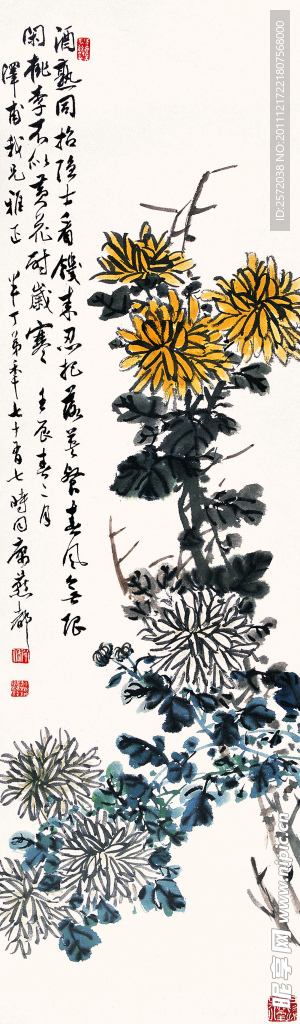 酒熟同招隐士看饑来忍把落英餐春风无限
闲桃李不似黄花耐岁寒 壬辰春二月
泽甫我兄雅正
半丁弟年七十有七时同寓燕都
ID:2572038 NO:20111217221807568000
昵享网 www.nipic.cn